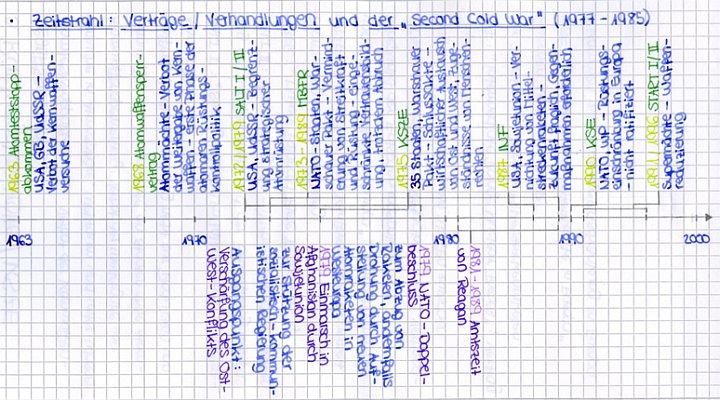 · Zeitstrahl: Verträge / Verhandlungen und der „Second Cold War" (1977 - 1985)
1963 Atomteststopp-
abkommen
USA, GB, UdSSR -
Verbot der Kernwaffen-
versuche
1968 Atomwaffensperr-
vertrag -
Atommächte - Verbot
der Weitergabe von Kern-
waffen - erste Phase der
atomaren Rüstungs-
kontrollpolitik
1972/1979 SALT I / II
USA, UdSSR - Begrenz-
ung strategischer
Atomrüstung
1973 - 1989 MBFR
NATO-Staaten, War-
schauer Pakt - Vermind-
erung von Streitkraft
und Rüstung - einge-
schränkte Vertrauensbild-
ung, trotzdem Abbruch
1975 KSZE
35 Staaten, Warschauer
Pakt - Schlussakte -
wirtschaftlicher Austausch
von Ost und West, Zuge-
ständnisse von Menschen-
rechten
1987 INF
USA, Sowjetunion - Ver-
nichtung von Mittel-
streckenraketen -
Zukunft fraglich, Gegen-
maßnahmen erforderlich
1990 KSE
NATO, WP - Rüstungs-
einschränkung in Europa
- nicht ratifiziert
1991/1996 START I / II
Supermächte - Waffen-
reduzierung
1963
1970
1980
1990
2000
1979 Einmarsch in
Afghanistan durch
Sowjetunion
zur Stützung der
sozialistisch-kommun-
istischen Regierung
Ausgangspunkt:
Verschärfung des Ost-
West-Konflikts
1979 NATO-Doppel-
beschluss
zum Abzug von
Raketen, andernfalls
Drohung durch Auf-
stellung von neuen
Atomraketen in
Westeuropa
1981 - 1989 Amtszeit
von Reagan